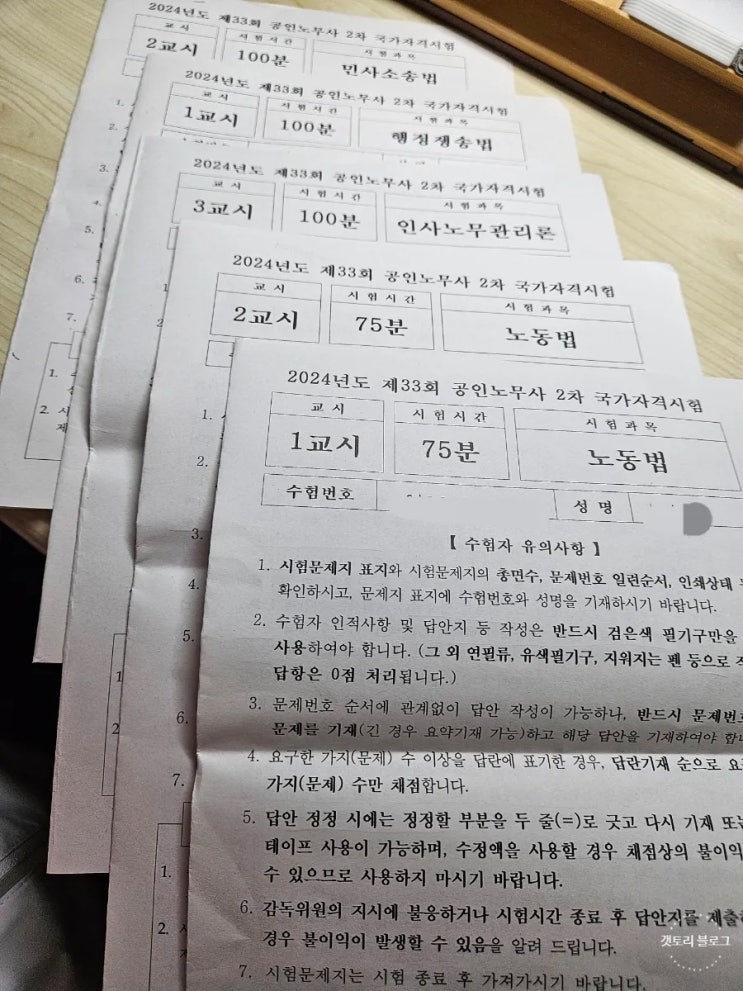 2024년도 제33회 공인노무사 2차 국가자격시험
교 시 시 험 시 간 시 험 과 목
2교시 100분 민사소송법
2024년도 제33회 공인노무사 2차 국가자격시험
교 시 시 험 시 간 시 험 과 목
1교시 100분 행정쟁송법
2024년도 제33회 공인노무사 2차 국가자격시험
교 시 시 험 시 간 시 험 과 목
3교시 100분 인사노무관리론
2024년도 제33회 공인노무사 2차 국가자격시험
교 시 시 험 시 간 시 험 과 목
2교시 75분 노동법
2024년도 제33회 공인노무사 2차 국가자격시험
교 시 시 험 시 간 시 험 과 목
1교시 75분 노동법
수험번호 성 명
【 수험자 유의사항 】
1. 시험문제지 표지와 시험문제지의 총면수, 문제번호 일련순서, 인쇄상태
확인하시고, 문제지 표지에 수험번호와 성명을 기재하시기 바랍니다.
2. 수험자 인적사항 및 답안지 등 작성은 반드시 검은색 필기구만을
사용하여야 합니다. (그 외 연필류, 유색필기구, 지워지는 펜 등으로
답항은 0점 처리됩니다.)
3. 문제번호 순서에 관계없이 답안 작성이 가능하나, 반드시 문제번호
문제를 기재(긴 경우 요약기재 가능)하고 해당 답안을 기재하여야
4. 요구한 가지(문제) 수 이상을 답란에 표기한 경우, 답란기재 순으로
가지(문제) 수만 채점합니다.
5. 답안 정정 시에는 정정할 부분을 두 줄(=)로 긋고 다시 기재 또는
테이프 사용이 가능하며, 수정액을 사용할 경우 채점상의 불이익
수 있으므로 사용하지 마시기 바랍니다.
6. 감독위원의 지시에 불응하거나 시험시간 종료 후 답안지를
경우 불이익이 발생할 수 있음을 알려 드립니다.
7. 시험문제지는 시험 종료 후 가져가시기 바랍니다.
갯토리 블로그